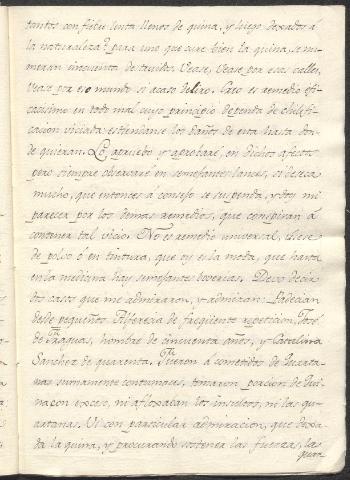 tantos con fiebre lenta llenos de quina, y luego dexados á
la naturaleza? para uno que cure bien la quina, se nu-
meran cinquenta de tavidos. Vease, vease por esas calles,
vease por ese mundo si acaso deliro. Creo es remedio efi-
cacissimo en todo mal cuyo principio dependa de chilifi-
cacion viciada: estiendanse los daños de esta hasta don-
de quieran. Lo apruebo y aprobaré, en dichos afectos
pero siempre observare en semejantes lances, si deseca
mucho, que entonces á consejo se suspenda, y doy mi
parecer por los demas remedios, que conspiran á
contener tal vicio. No es remedio universal, diese
de polvo o en tintura, que oy es la moda, que hasta
en la medicina hay semejantes boverias. Devo decir
dos casos que me admiraron, y admiran: Padecian
desde pequeños Alferecia de freqüente repeticion, Josè
de Eraguas, hombre de cinquenta años, y Catelina
Sanchez de quarenta. Fueron acometidos de Quarta-
nas sumamente contumaces, tomaron porcion de Qui-
na con exceso, ni afloxaban los insultos, ni las qu-
artanas. Vi con particular admiracion, que dexa-
da la quina, y procurando sostener las fuerzas, las
quar